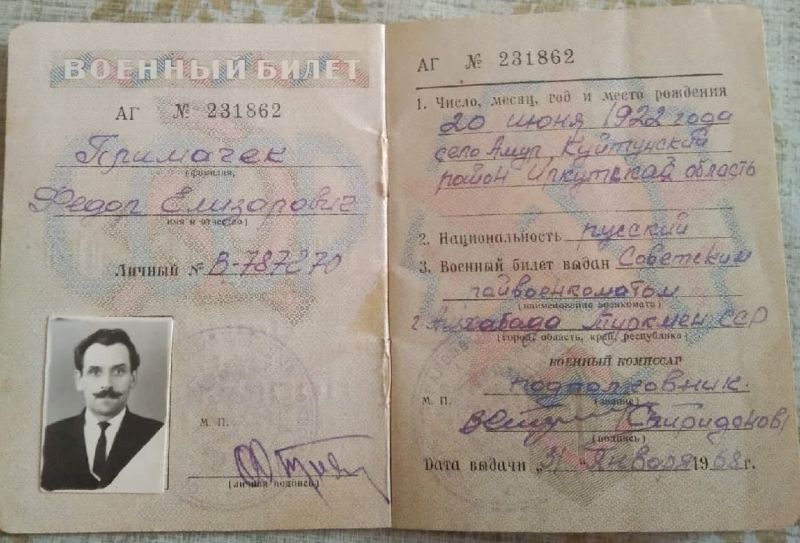 ВОЕННЫЙ БИЛЕТ
АГ № 231862
Примачек
(фамилия,
Федор Елизарович
имя и отчество)
Личный № В-787270
М. П.
(личная подпись)
АГ № 231862
1. Число, месяц, год и место рождения
20 июня 1922 года
село Амур, Куйтунский
район Иркутская область
2. Национальность русский
3. Военный билет выдан Советским
райвоенкоматом
(наименование военкомата)
г. Ашхабада Туркмен. ССР
(город, область, край, республика)
ВОЕННЫЙ КОМИССАР
подполковник
М. П. (звание)
Спиридонов
(подпись)
Дата выдачи " " Января 1968 г.